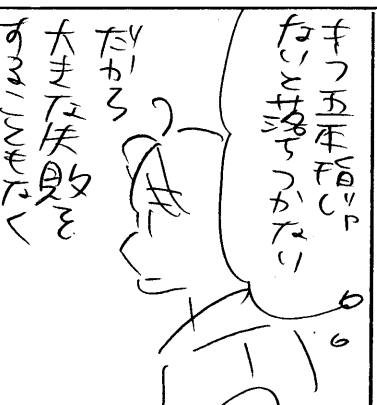 もう五本指じゃ
ないと落ちつかない
だから
大きな失敗を
することもなく